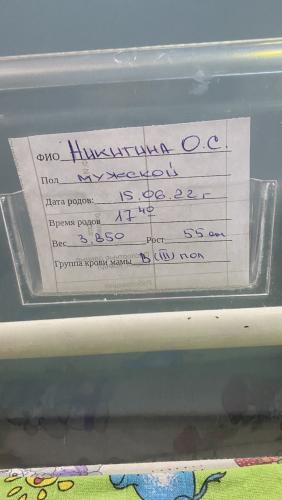 ФИО Никитина О.С.
Пол мужской
Дата родов: 15.06.22 г
Время родов 17 40
Вес 3.850 Рост 55 см
Группа крови мамы B (III) пол